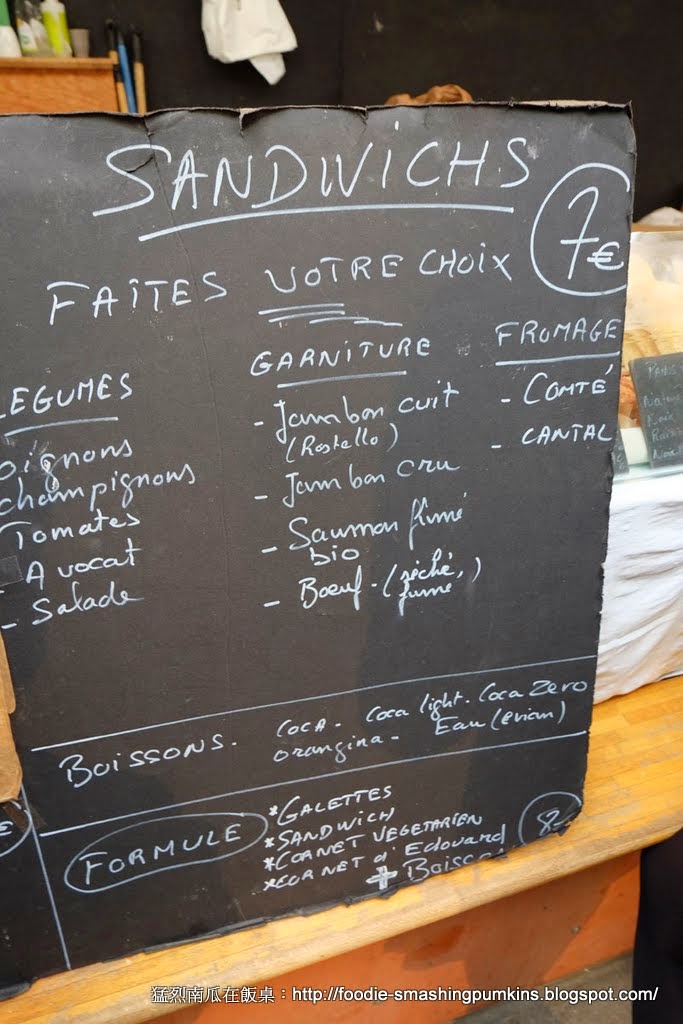 SANDWICHS
7€
FAITES VOTRE CHOIX
LEGUMES
oignons
champignons
Tomates
- Avocat
- Salade
GARNITURE
- Jambon cuit
(Rostello)
- Jambon cru
- Saumon fumé
bio
- Boeuf - (séché,
fumé)
FROMAGE
- COMTÉ
- CANTAL
BOISSONS. COCA - Coca light. Coca Zero
orangina - Eau (evian)
FORMULE
*GALETTES
*SANDWICH
*CORNET VEGETARIEN
*CORNET d'Edouard
+ Boisso
8-
猛烈南瓜在飯桌：http://foodie-smashingpumkins.blogspot.com/